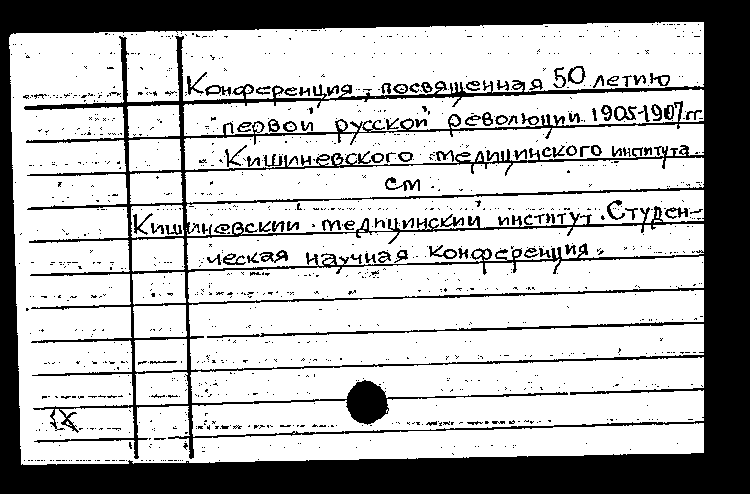 Конференция, посвященная 50 летию
первой русской революции 1905-1907 гг.
Кишиневского медицинского института
см.
Кишиневский медицинский институт. Студен-
ческая научная конференция.